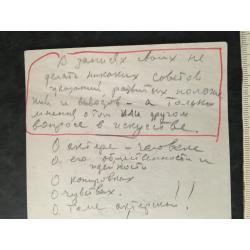 В записях своих не
делать никаких советов
указаний развитых положе
ний и выводов - а только
мнения о том или другом
вопросе в искусстве.
О актере - человеке
О его общественности и
идейности
О копировках
О чувствах.
О теме актерской !!